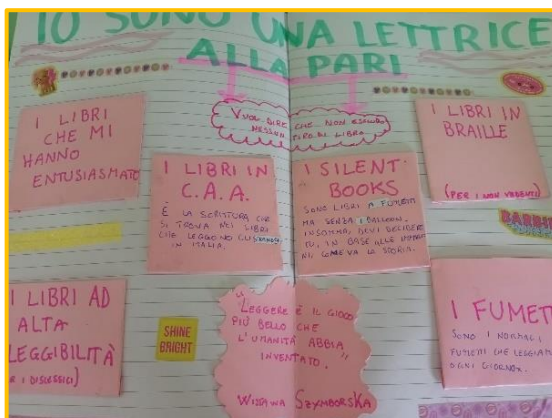 IO SONO UNA LETTRICE
ALLA PARI
VUOL DIRE CHE NON ESCLUDO
NESSUN TIPO DI LIBRO.
I LIBRI
CHE MI
HANNO
ENTUSIASMATO
I LIBRI IN
C.A.A.
È LA SCRITTURA CHE
SI TROVA NEI LIBRI
CHE LEGGONO GLI
IN ITALIA.
I SILENT
BOOKS
SONO LIBRI A FUMETTI
MA SENZA I BALLOON.
INSOMMA, DEVI DECIDERE
TU, IN BASE ALLE
NI COME VA LA STORIA.
I LIBRI IN
BRAILLE
(PER I NON VEDENTI)
BARBIE
I LIBRI AD
ALTA
LEGGIBILITÀ
I DISLESSICI)
SHINE
BRIGHT
"LEGGERE È IL GIOCO
PIÙ BELLO CHE
L'UMANITÀ ABBIA
INVENTATO."
WISŁAWA SZYMBORSKA
I FUMETTI
SONO I NORMALI
FUMETTI CHE LEGGIAMO
OGNI GIORNO.